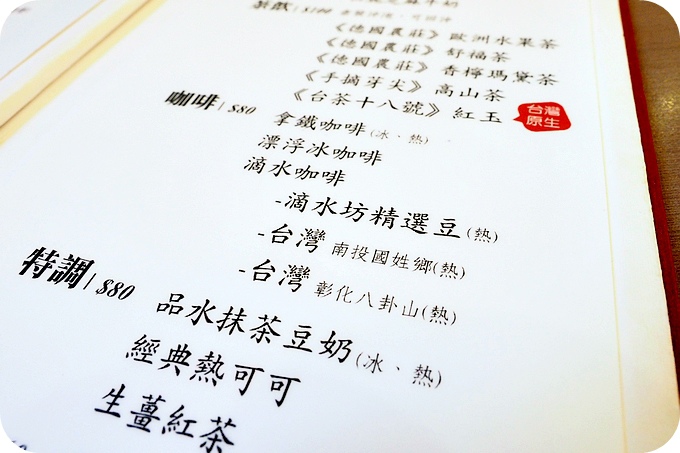 茶飲 | $100
《德國農莊》歐洲水果茶
《德國農莊》舒福茶
《德國農莊》香檸瑪黛茶
《手摘芽尖》高山茶
《台茶十八號》紅玉 台灣原生
咖啡 | $80
拿鐵咖啡(冰、熱)
漂浮冰咖啡
滴水咖啡
-滴水坊精選豆(熱)
-台灣 南投國姓鄉(熱)
-台灣 彰化八卦山(熱)
特調 | $80
品水抹茶豆奶(冰、熱)
經典熱可可
生薑紅茶